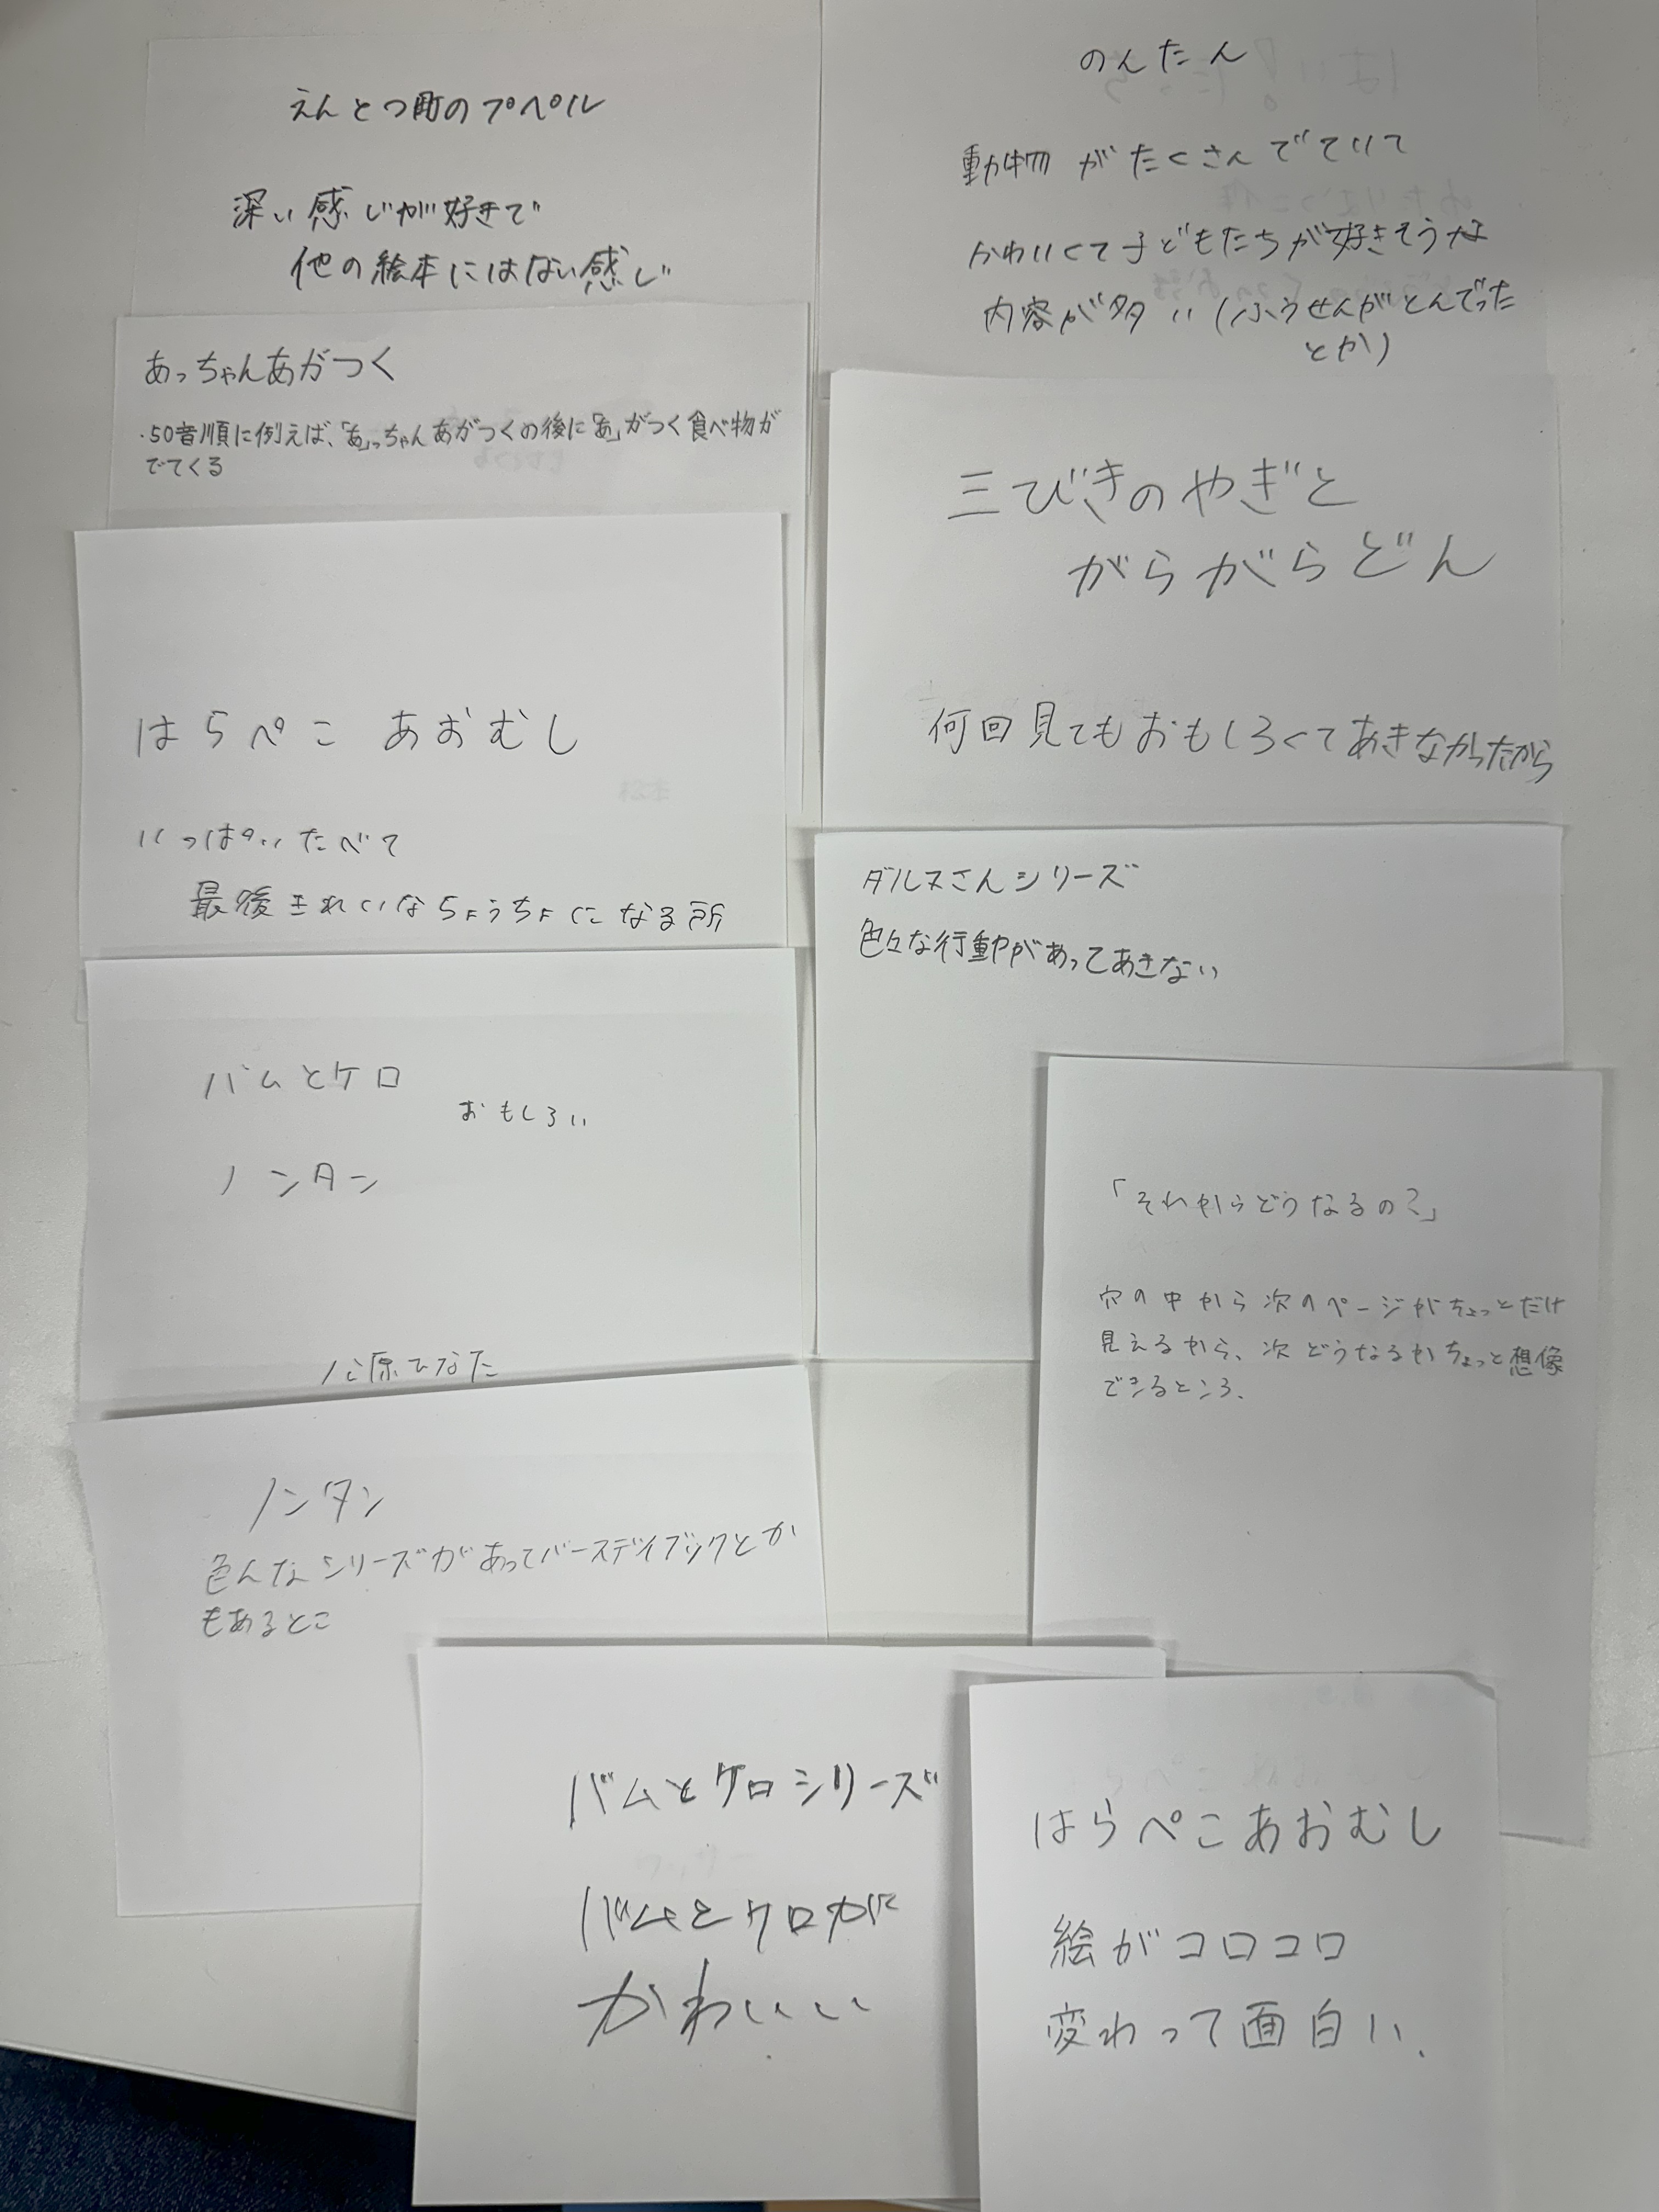 えんとつ町のプペル
深い感じが好きで
他の絵本にはない感じ
のんたん
動物がたくさんでていて
かわいくて子どもたちが好きそうな
内容が多い(ふうせんがとんでった
とか)
あっちゃんあがつく
・50音順に例えば、「あ」っちゃんあがつくの後に「あ」がつく食べ物が
でてくる
三びきのやぎと
がらがらどん
何回見てもおもしろくてあきなかったから
はらぺこ あおむし
いっぱいたべて
最後きれいなちょうちょになる所
ダルマさんシリーズ
色々な行動があってあきない
バムとケロ
おもしろい
ノンタン
原ひなた
「それからどうなるの?」
穴の中から次のページがちょっとだけ
見えるから、次どうなるかちょっと想像
できるところ、
ノンタン
色んなシリーズがあってバースデイブックとか
もあるとこ
バムとケロシリーズ
バムとケロが
かわいい
はらぺこあおむし
絵がコロコロ
変わって面白い、